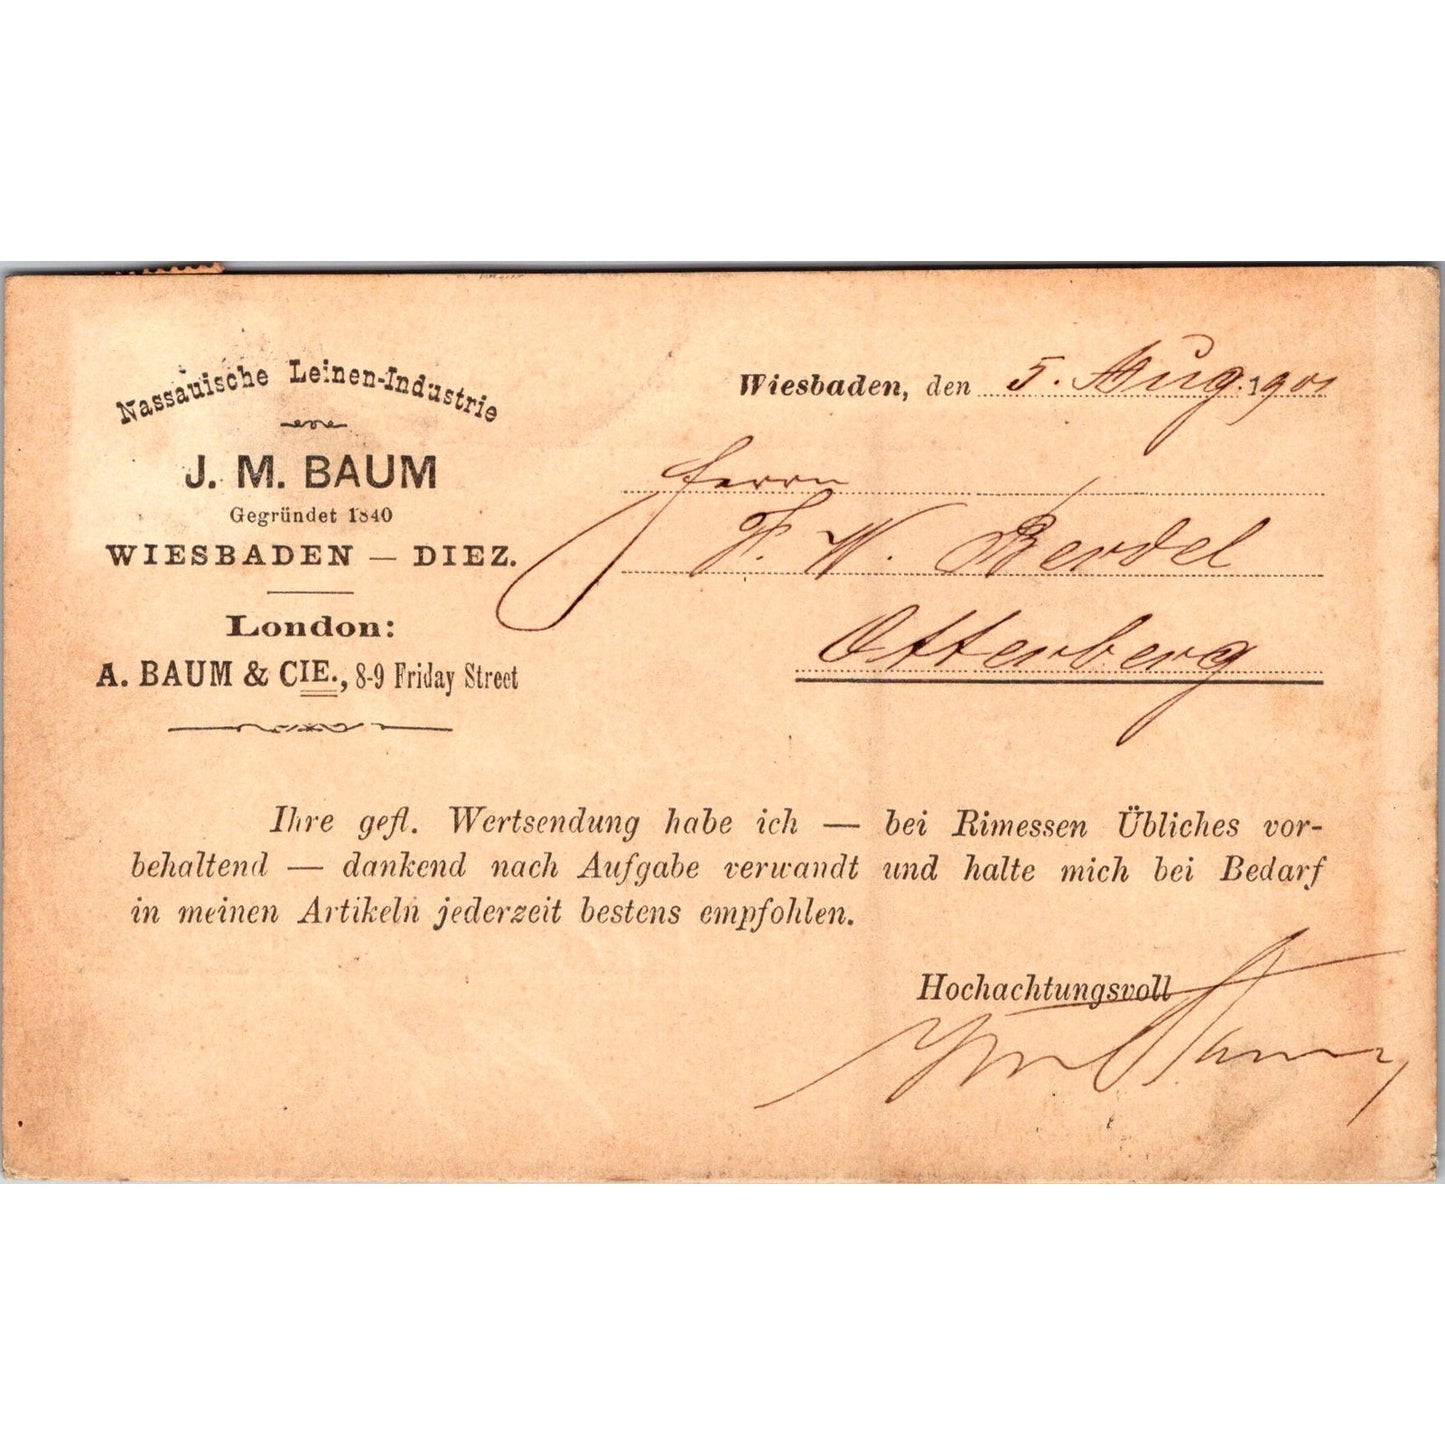 Nassauische Leinen-Industrie
J. M. BAUM
Gegründet 1840
WIESBADEN — DIEZ.
London:
A. BAUM & CIE., 8-9 Friday Street
Wiesbaden, den 5. Aug. 1901
Herrn
F. W. Berdel
Otterberg
Ihre gefl. Wertsendung habe ich — bei Rimessen Übliches vor-
behaltend — dankend nach Aufgabe verwandt und halte mich bei Bedarf
in meinen Artikeln jederzeit bestens empfohlen.
Hochachtungsvoll